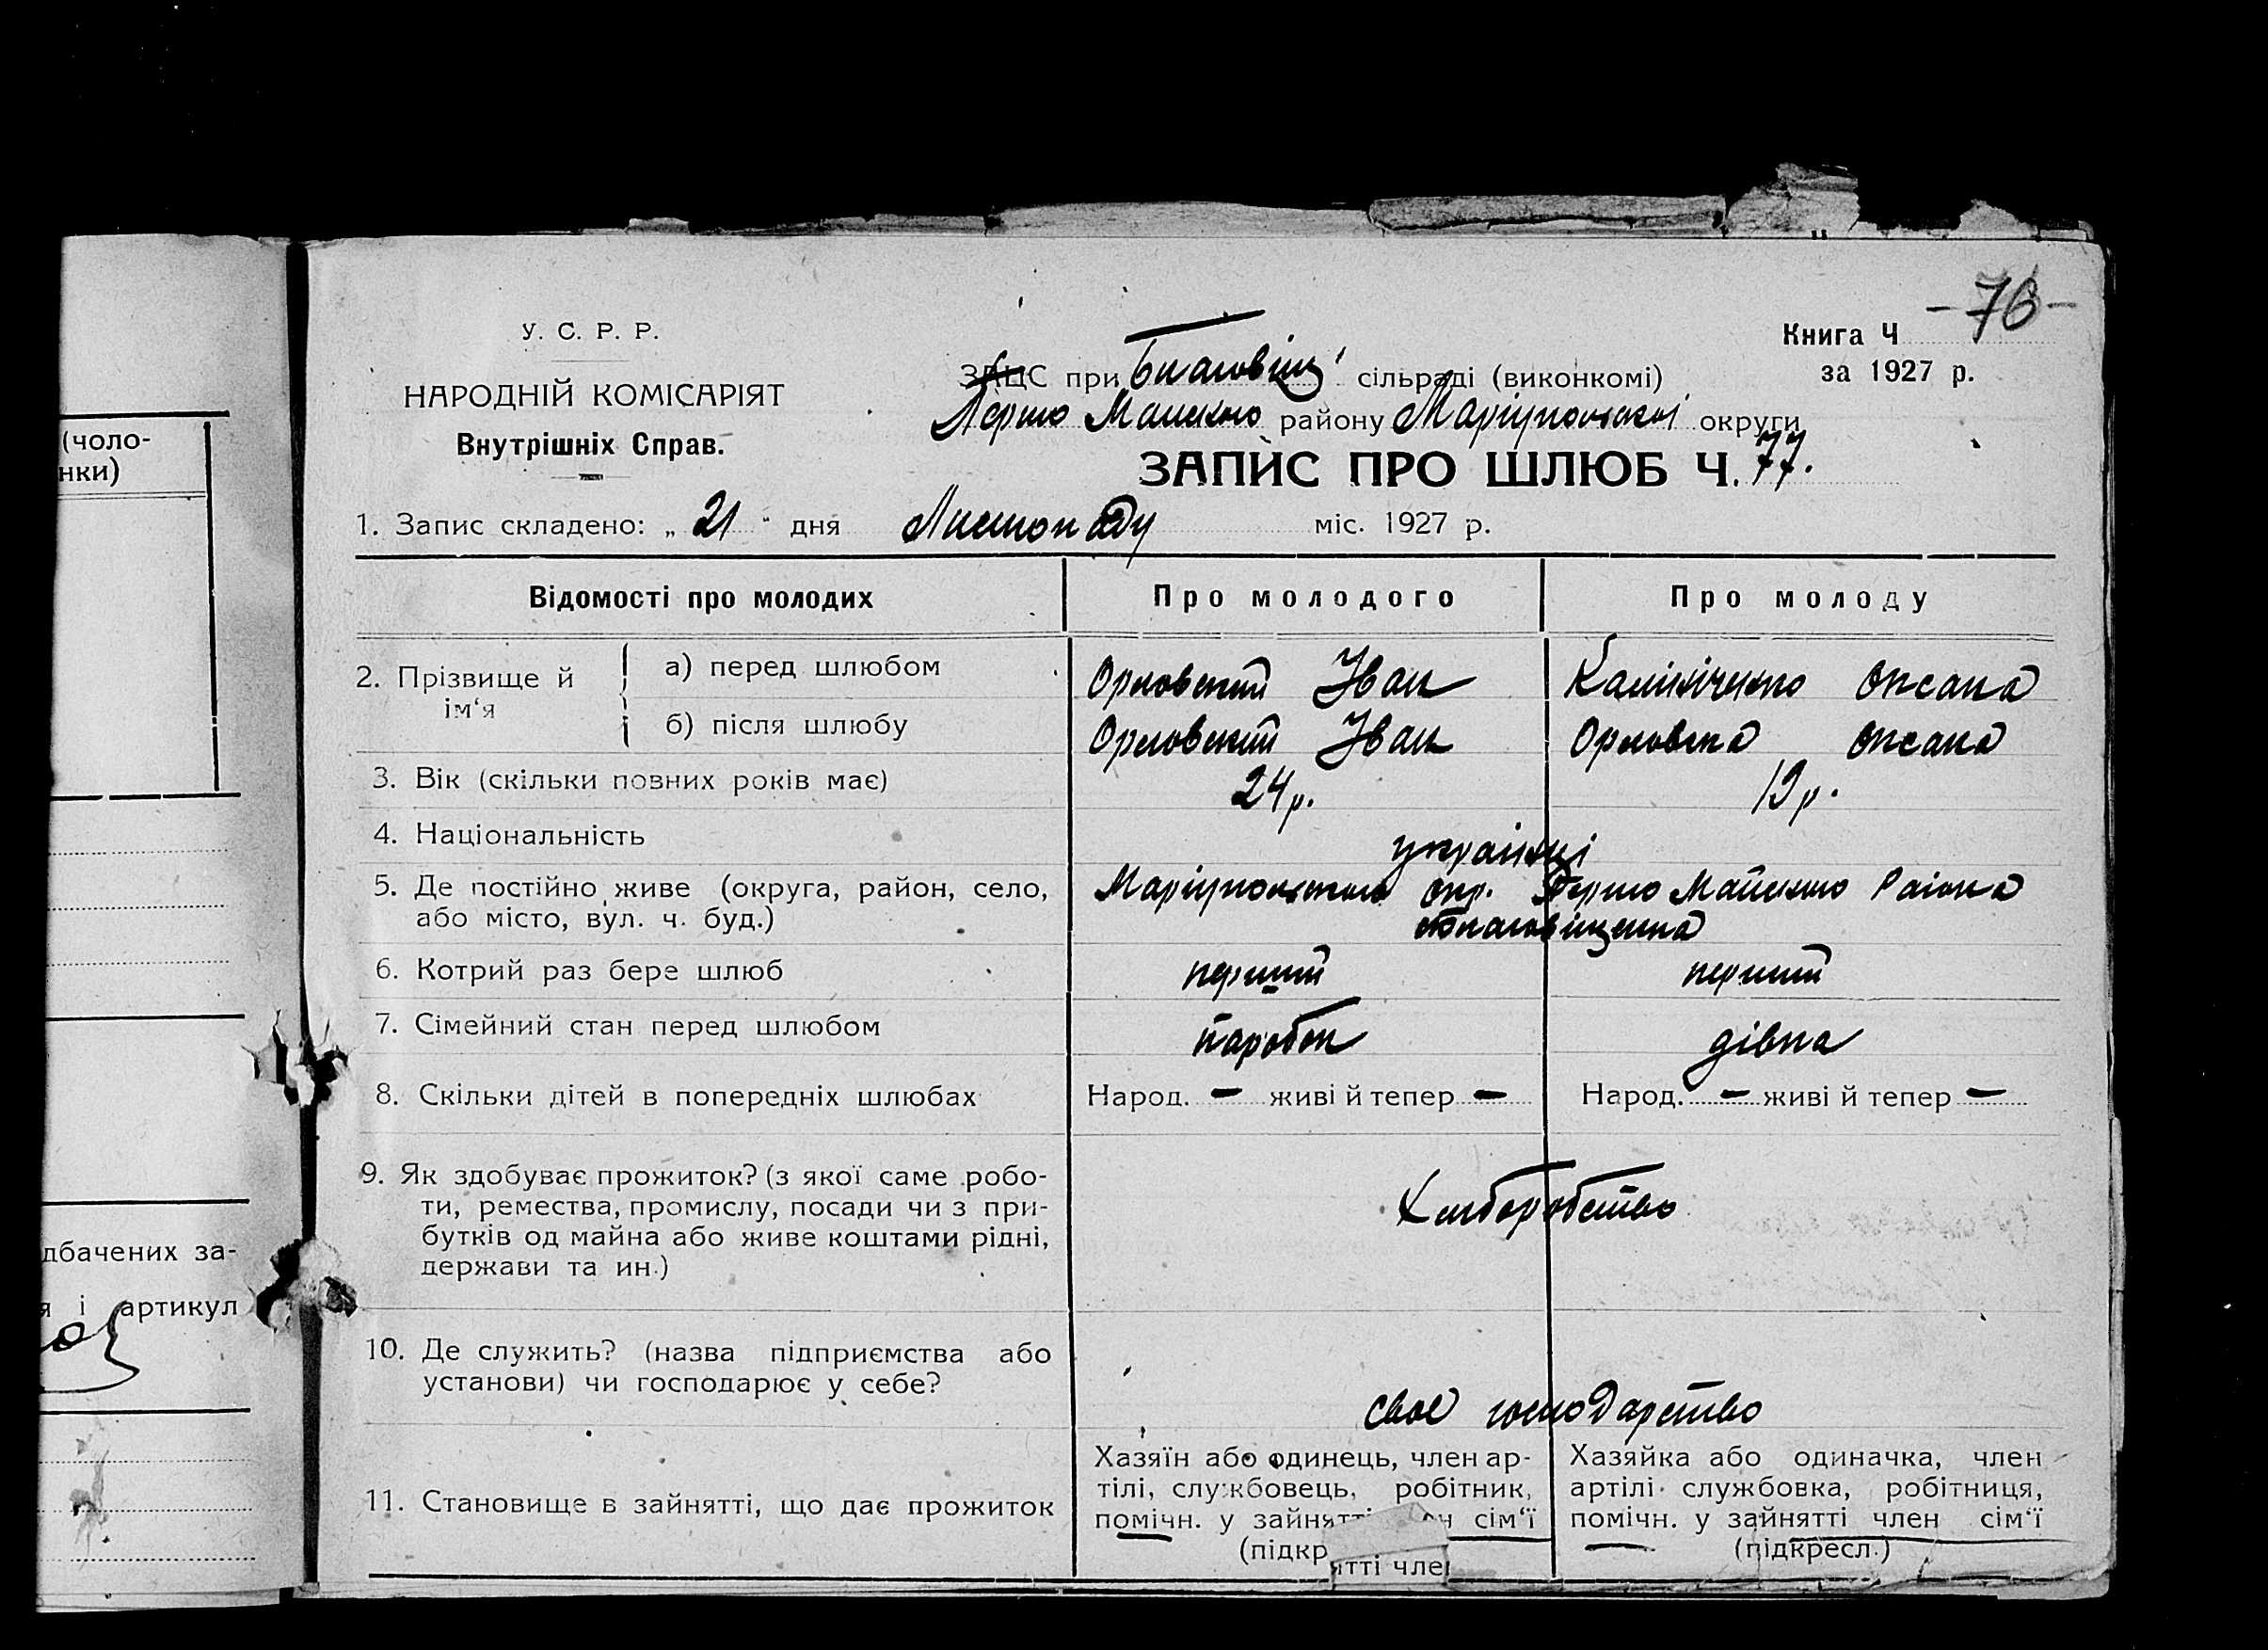 (чоло-
нки)
дбачених за-
я і артикул
-76-
У. С. Р. Р.
НАРОДНІЙ КОМІСАРІЯТ
Внутрішніх Справ.
Книга Ч
за 1927 р.
ЗАЦС при Благовіщ сільраді (виконкомі)
Першо Майського району Маріупольської округи
ЗАПИС ПРО ШЛЮБ Ч. 77.
1. Запис складено: „ 21 " дня Листопаду міс. 1927 р.
Відомості про молодих Про молодого Про молоду
2. Прізвище й ім'я
а) перед шлюбом Орловский Іван Калініченко Оксана
б) після шлюбу Орловский Іван Орловска Оксана
3. Вік (скільки повних років має) 24 р. 19 р.
4. Національність українці
5. Де постійно живе (округа, район, село, Маріупольского окр. Першо Майського Раіона
або місто, вул. ч. буд.) Благовіщенка
6. Котрий раз бере шлюб перший перший
7. Сімейний стан перед шлюбом паробок дівка
8. Скільки дітей в попередніх шлюбах Народ. — живі й тепер — Народ. — живі й тепер —
9. Як здобуває прожиток? (з якої саме робо-
ти, ремества, промислу, посади чи з при- Хліборобство
бутків од майна або живе коштами рідні,
держави та ин.)
10. Де служить? (назва підприємства або
установи) чи господарює у себе? своє господарство
11. Становище в зайнятті, що дає прожиток
Хазяїн або одинець, член ар-
тілі, службовець, робітник,
помічн. у зайнятті сім'ї
(підкр
ятті член
Хазяйка або одиначка, член
артілі службовка, робітниця,
помічн. у зайнятті член сім'ї
(підкресл.)